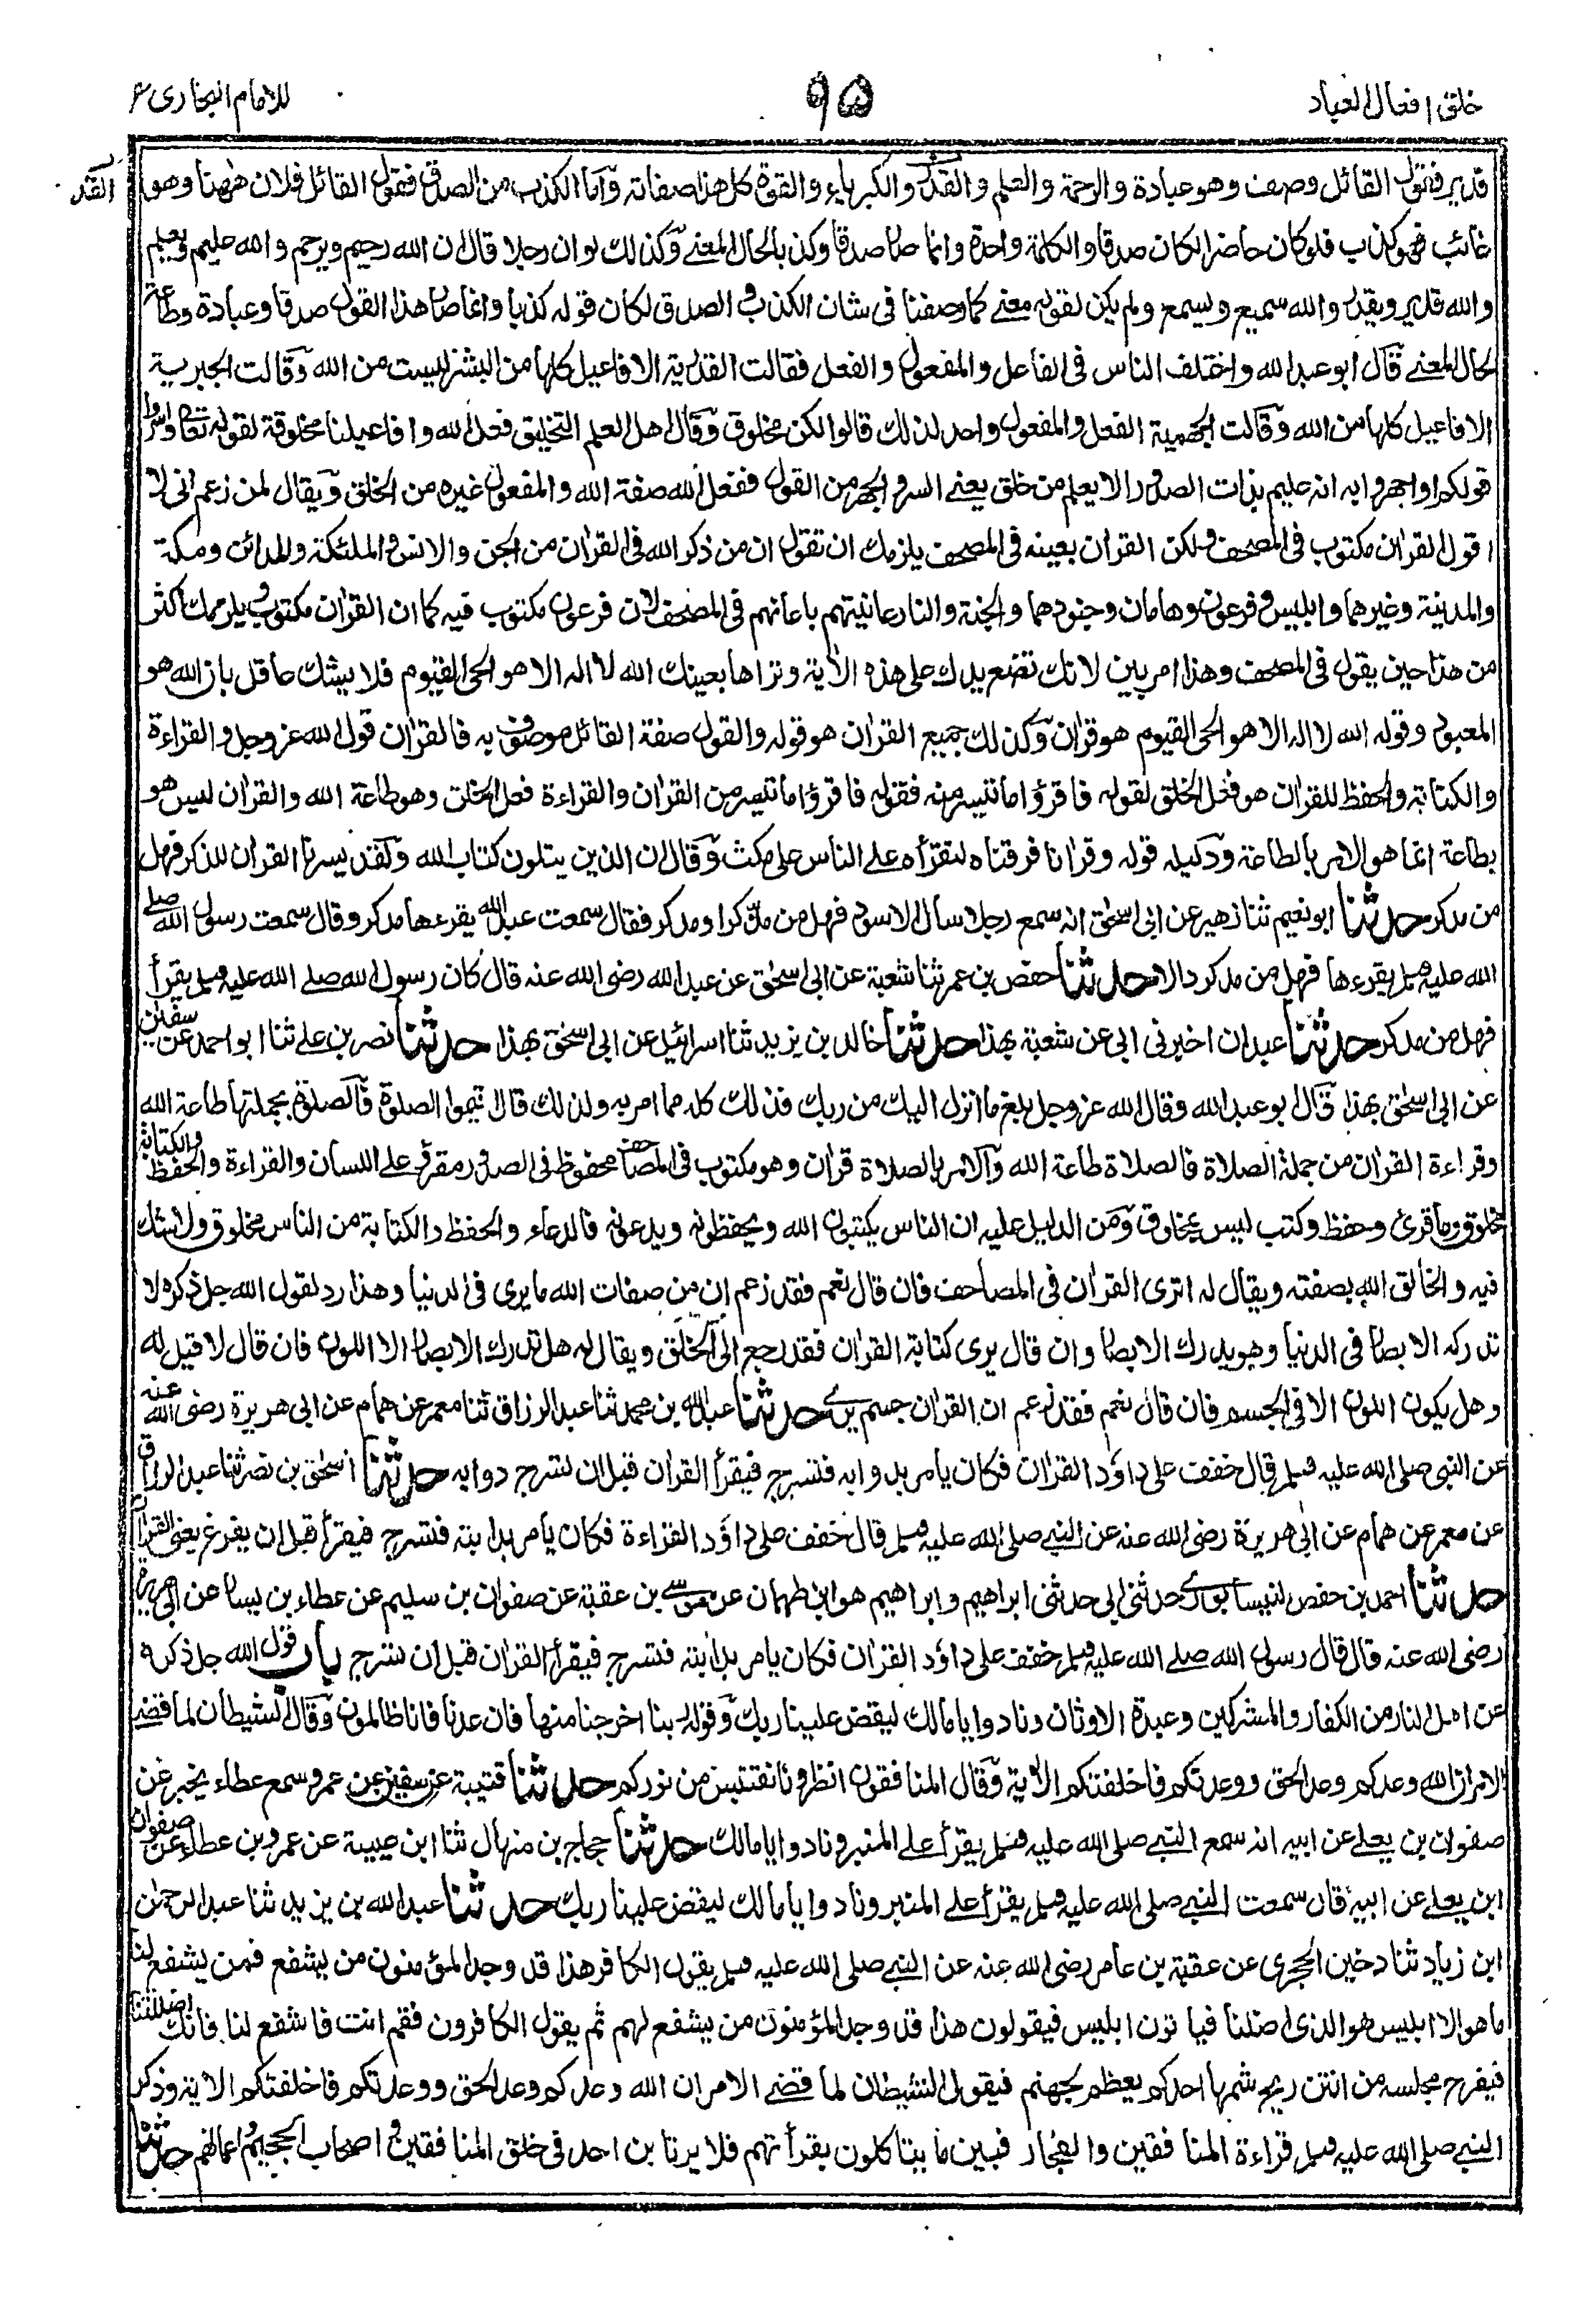 خلق افعال العباد
٩٥
للامام البخاري
القد
قدير فقول القائل وصف وهو عبادة والرحمة والعلم والقدر والكبرياء والقوة كل هذا صفاته وأما الكذب من الصدق فقول القائل فلان ههنا وهو
غائب فهو كذب فلو كان حاضرا لكان صدقا والكلمة واحدة وانما صار صدقا وكذبا لحال المعنى وكذلك لو ان رجلا قال ان الله رحيم ويرحم والله عليم ويعلم
والله قدير ويقدر والله سميع ويسمع ولم يكن لقوله معنى كما وصفنا في شان الكذب والصدق لكان قوله كذبا وانما صار هذا القول صدقا وعبادة وطاعة
لحال المعنى قال ابو عبد الله واختلف الناس في الفاعل والمفعول والفعل فقالت القدرية الافاعيل كلها من البشر ليست من الله وقالت الجبرية
الافاعيل كلها من الله وقالت الجهمية الفعل والمفعول واحد لذلك قالوا لكن مخلوق وقال اهل العلم التخليق فعل الله وافاعيلنا مخلوقة لقوله تعالى واسروا
قولكم او اجهروا به انه عليم بذات الصدور الا يعلم من خلق يعني السر والجهر من القول ففعل الله صفة الله والمفعول غيره من الخلق ويقال لمن زعم اني لا
اقول القران مكتوب في المصحف ولكن القران بعينه في المصحف يلزمك ان تقول ان من ذكر الله في القران من الجن والانس والملئكة والمدائن ومكة
والمدينة وغيرهما وابليس وفرعون وهامان وجنودهما والجنة والنار عاينتهم باعيانهم في المصحف لان فرعون مكتوب فيه كما ان القران مكتوب ويلزمك اكثر
من هذا حين يقول في المصحف وهذا امر بين لانك تضع يدك على هذه الاية وتراها بعينك الله لا اله الا هو الحي القيوم فلا يشك عاقل بان الله هو
المعبود وقوله الله لا اله الا هو الحي القيوم هو قران وكذلك جميع القران هو قوله والقول صفة القائل موصوف به فالقران قول الله عز وجل والقراءة
والكتابة والحفظ للقران هو فعل الخلق لقوله فاقرؤا ما تيسر منه فقوله فاقرؤا ما تيسر من القران والقراءة فعل الخلق وهو طاعة الله والقران ليس هو
بطاعة انما هو الامر بالطاعة ودليله قوله وقرانا فرقناه لتقرأه على الناس على مكث وقال ان الذين يتلون كتاب الله ولقد يسرنا القران للذكر فهل
من مدكر حدثنا ابو نعيم ثنا زهير عن ابي اسحق انه سمع رجلا سال الاسود فهل من مذكر او مدكر فقال سمعت عبد الله يقرءها مدكر وقال سمعت رسول الله صلى
الله عليه وسلم يقرءها فهل من مدكر دالا حدثنا حفص بن عمر ثنا شعبة عن ابي اسحق عن عبد الله رضي الله عنه قال كان رسول الله صلى الله عليه وسلم يقرأ
فهل من مدكر حدثنا عبدان اخبرني ابي عن شعبة بهذا حدثنا خالد بن يزيد ثنا اسرائيل عن ابي اسحق بهذا حدثنا نصر بن علي ثنا ابو احمد عن سفين
عن ابي اسحق بهذا قال ابو عبد الله وقال الله عز وجل بلغ ما انزل اليك من ربك فذلك كله مما امر به ولذلك قال اقيموا الصلوة فالصلوة بجملتها طاعة الله
وقراءة القران من جملة الصلاة فالصلاة طاعة الله والامر بالصلاة قران وهو مكتوب في المصاحف محفوظ في الصدور مقرؤ على اللسان والقراءة والحفظ والكتابة
مخلوق وما قرئ وحفظ وكتب ليس بمخلوق ومن الدليل عليه ان الناس يكتبون الله ويحفظونه ويدعونه فالدعاء والحفظ والكتابة من الناس مخلوق ولا شك
فيه والخالق الله بصفته ويقال له اترى القران في المصاحف فان قال نعم فقد زعم ان من صفات الله ما يرى في الدنيا وهذا رد لقول الله جل ذكره لا
تدركه الابصار في الدنيا وهو يدرك الابصار وان قال يرى كتابة القران فقد رجع الى الخلق ويقال له هل تدرك الابصار الا اللون فان قال لا قيل له
وهل يكون اللون الا في الجسم فان قال نعم فقد زعم ان القران جسم يرى حدثنا عبد الله بن محمد ثنا عبد الرزاق ثنا معمر عن همام عن ابي هريرة رضي الله عنه
عن النبي صلى الله عليه وسلم قال خفف على داؤد القران فكان يامر بدوابه فتسرج فيقرأ القران قبل ان تسرج دوابه حدثنا اسحق بن نصر ثنا عبد الرزاق
عن معمر عن همام عن ابي هريرة رضي الله عنه عن النبي صلى الله عليه وسلم قال خفف على داؤد القراءة فكان يامر بدابته فتسرج فيقرأ قبل ان يفرغ يعني القران
حدثنا احمد بن حفص النيسابوري حدثني ابي حدثني ابراهيم وابراهيم هو ابن طهمان عن موسى بن عقبة عن صفوان بن سليم عن عطاء بن يسار عن ابي هريرة
رضي الله عنه قال قال رسول الله صلى الله عليه وسلم خفف على داؤد القران فكان يامر بدابته فتسرج فيقرأ القران قبل ان تسرج باب قول الله جل ذكره
عن اهل النار من الكفار والمشركين وعبدة الاوثان ونادوا يا مالك ليقض علينا ربك وقوله ربنا اخرجنا منها فان عدنا فانا ظالمون وقال الشيطان لما قضي
الامر ان الله وعدكم وعد الحق ووعدتكم فاخلفتكم الاية وقال المنافقون انظرونا نقتبس من نوركم حدثنا قتيبة عن سفين عن عمرو سمع عطاء يخبر عن
صفوان بن يعلى عن ابيه انه سمع النبي صلى الله عليه وسلم يقرأ على المنبر ونادوا يا مالك حدثنا حجاج بن منهال ثنا ابن عيينة عن عمرو بن عطاء عن صفوان
ابن يعلى عن ابيه قال سمعت النبي صلى الله عليه وسلم يقرأ على المنبر ونادوا يا مالك ليقض علينا ربك حدثنا عبد الله بن يزيد ثنا عبد الرحمن
ابن زياد ثنا دخين الحجري عن عقبة بن عامر رضي الله عنه عن النبي صلى الله عليه وسلم يقول الكافر هذا قد وجد المؤمنون من يشفع فمن يشفع لنا
ما هو الا ابليس هو الذي اضلنا فيا تون ابليس فيقولون هذا قد وجد المؤمنون من يشفع لهم ثم يقول الكافرون فقم انت فاشفع لنا فانك اضللتنا
فيفرح مجلسه من انتن ريح شمها احدكم يعظم بجهنم فيقول الشيطان لما قضي الامر ان الله وعدكم وعد الحق ووعدتكم فاخلفتكم الاية وذكر
النبي صلى الله عليه وسلم قراءة المنافقين والفجار فبين ما يتاكلون بقرأتهم فلا يرتابن احد في خلق المنافقين واصحاب الجحيم واعمالهم حدثنا